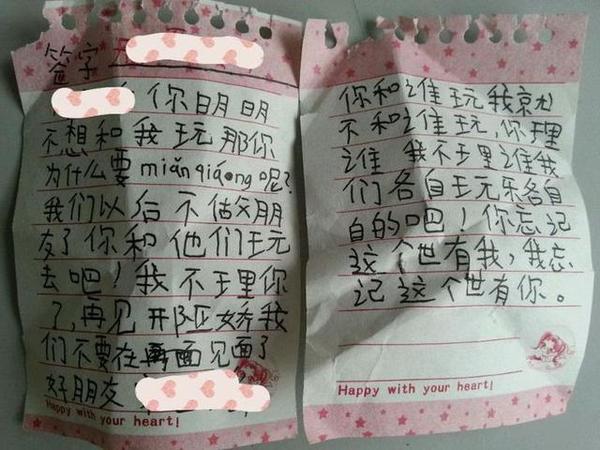 签字
你明明
不想和我王元那你
为什么要miǎnqiáong呢?
我们以后不做朋
友了你和他们玩
去吧!我不理你
了,再见
们不要在再面见面了
好朋友
Happy with your heart!
你和谁玩我就
不和谁玩,你理
谁 我不理谁我
们各自玩乐各自
自的吧!你忘记
这个世有我,我忘
记这个世有你。
Happy with your heart!